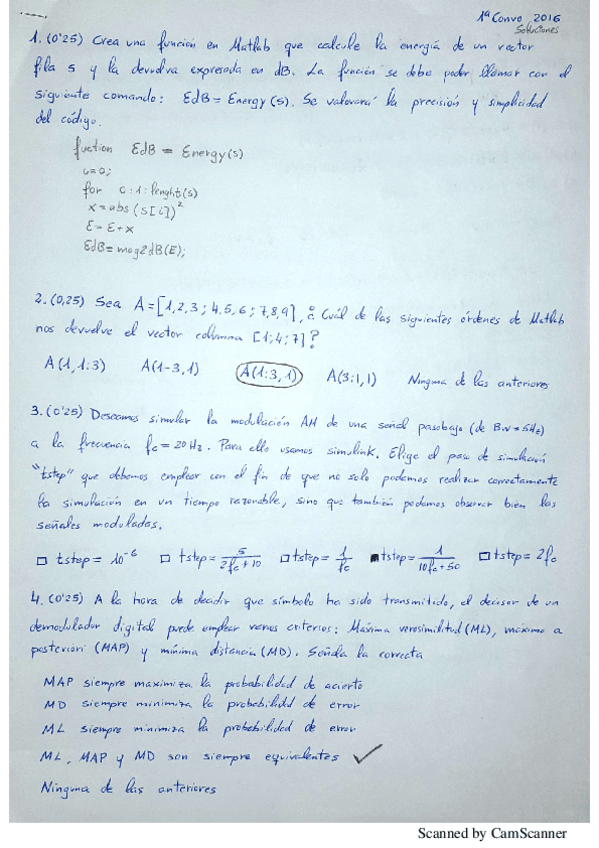 1ª Convo 2016
Soluciones
1. (0'25) Crea una función en Matlab que calcule la energía de un vector
fila s y la devuelva expresada en dB. La función se debe poder llamar con el
siguiente comando: EdB = Energy (s). Se valorará la precisión y simplicidad
del código.
fuction EdB = Energy(s)
for 0:1:lenght(s)
x = abs (s[i])²
E = E+x
EdB = mag2dB(E);
2. (0,25) Sea A = [1,2,3 ; 4,5,6 ; 7,8,9], ¿Cuál de las siguientes órdenes de Matlab
nos devuelve el vector columna [1;4;7]?
A(1,1:3) A(1-3,1) A(1:3,1) A(3:1,1) Ninguna de las anteriores
3. (0'25) Deseamos simular la modulación AM de una señal pasobajo (de BW = 5Hz)
a la frecuencia fc = 20 Hz. Para ello usamos simulink. Elige el paso de simulación
"tstep" que debemos emplear con el fin de que no solo podamos realizar correctamente
la simulación en un tiempo razonable, sino que también podamos observar bien las
señales moduladas.
tstep = 10⁻⁶ tstep = 5/(2fc+10) tstep = 1/fc tstep = 1/(10fc+50) tstep = 2fc
4. (0'25) A la hora de decidir que símbolo ha sido transmitido, el decisor de un
demodulador digital puede emplear varios criterios: Máxima verosimilitud (ML), máximo a
posteriori (MAP) y mínima distancia (MD). Señala la correcta
MAP siempre maximiza la probabilidad de acierto
MD siempre minimiza la probabilidad de error
ML siempre minimiza la probabilidad de error
ML, MAP y MD son siempre equivalentes ✓
Ninguna de las anteriores
Scanned by CamScanner